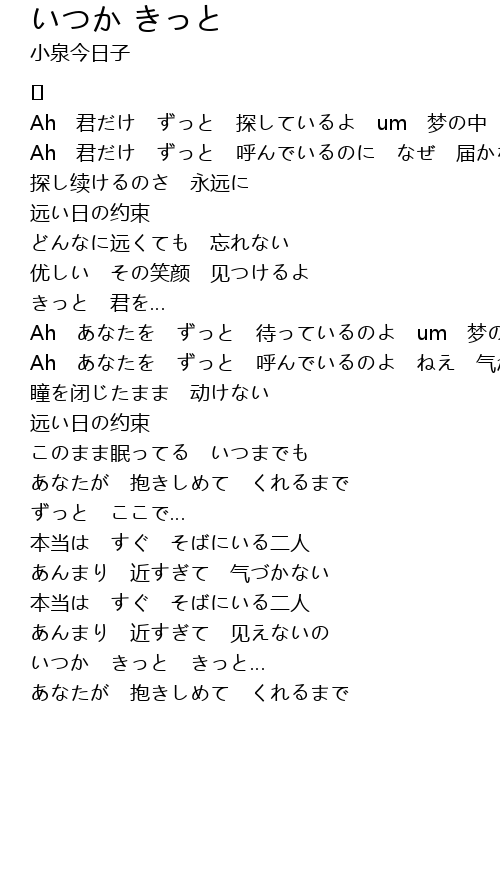 いつか きっと
小泉今日子
[]
Ah　君だけ　ずっと　探しているよ　um　梦の中
Ah　君だけ　ずっと　呼んでいるのに　なぜ　届か
探し续けるのさ　永远に
远い日の约束
どんなに远くても　忘れない
优しい　その笑颜　见つけるよ
きっと　君を...
Ah　あなたを　ずっと　待っているのよ　um　梦の
Ah　あなたを　ずっと　呼んでいるのよ　ねえ　气
瞳を闭じたまま　动けない
远い日の约束
このまま眠ってる　いつまでも
あなたが　抱きしめて　くれるまで
ずっと　ここで...
本当は　すぐ　そばにいる二人
あんまり　近すぎて　气づかない
本当は　すぐ　そばにいる二人
あんまり　近すぎて　见えないの
いつか　きっと　きっと...
あなたが　抱きしめて　くれるまで